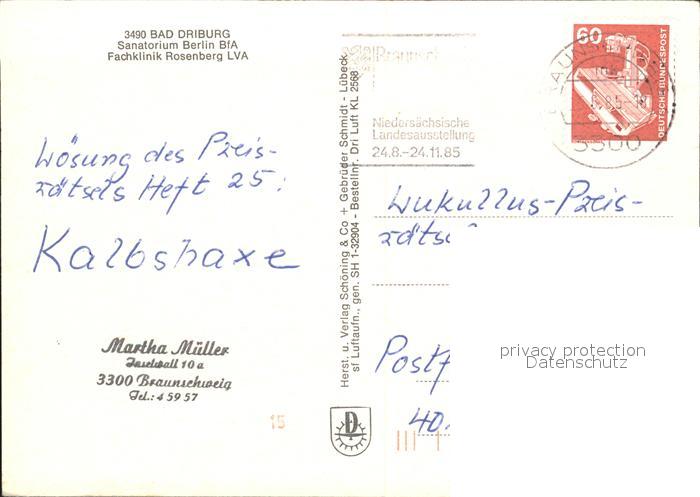 3490 BAD DRIBURG
Sanatorium Berlin BfA
Fachklinik Rosenberg LVA
Lösung des Preis-
rätsels Heft 25:
Kalbshaxe
Martha Müller
Inselwall 10a
3300 Braunschweig
Tel.: 4 59 57
15
Herst. u. Verlag Schöning & Co + Gebrüder Schmidt - Lübeck
sf Luftaufn., gen. SH 1-32904 - Bestellnr. Dri Luft KL 2568
D
Braunsch
Niedersächsische
Landesausstellung
24.8.-24.11.85
60
DEUTSCHE BUNDESPOST
BRAUNS
8.5-1
3300
Lukullus-Preis-
räts
Postf
40.
privacy protection
Datenschutz